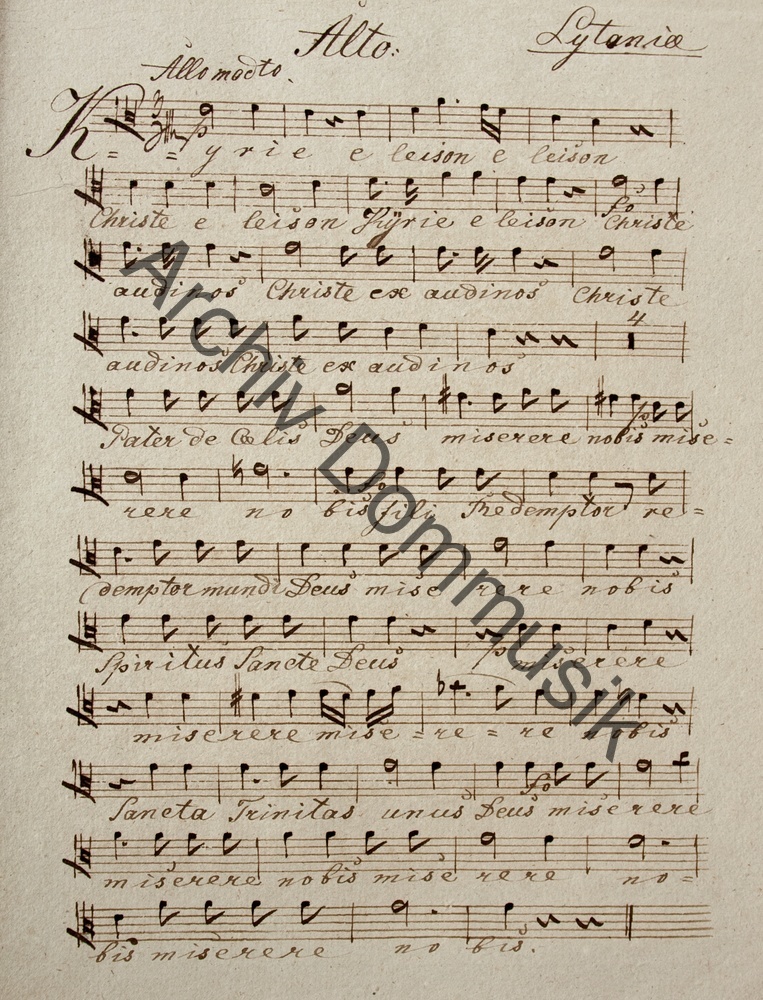 Alto:
Lytaniæ
Allo modto.
K = = yrie e leison e leison
Christe e leison Kÿrie e leison Christe
fo
audi nos Christe ex audi nos Christe
audi nos Christe ex audi nos
4
Pater de Cœlis Deus miserere nobis mise =
rere no bis fili Redemptor re =
fo
demptor mundi Deus mise rere nobis
Spiritus Sancte Deus miserere
p
miserere mise = re = re nobis
Sancta Trinitas unus Deus miserere
fo
miserere nobis mise rere no =
bis miserere no bis.
Archiv Dommusik